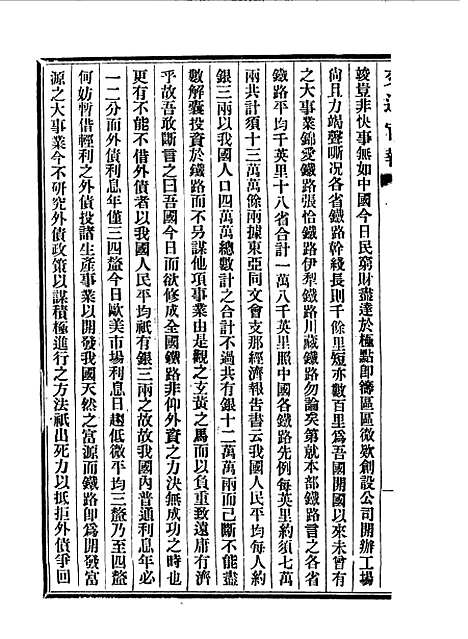 交通官報
竣豈非快事無如中國今日民窮財盡達於極點卽籌區區微欵創設公司開辦工塲
尙且力竭聲嘶況各省鐵路幹綫長則千餘里短亦數百里爲吾國開國以來未曾有
之大事業錦愛鐵路張恰鐵路伊犁鐵路川藏鐵路勿論矣第就本部鐵路言之各省
鐵路平均千英里十八省合計一萬八千英里照中國各鐵路先例每英里約須七萬
兩共計須十三萬萬餘兩據東亞同文會支那經濟報告書云我國人民平均每人約
銀三兩以我國人口四萬萬總數計之合計不過共有銀十二萬萬兩而已斷不能盡
數解囊投資於鐵路而不另謀他項事業由是觀之玄黃之馬而以負重致遠庸有濟
乎故吾敢斷言之曰吾國今日而欲修成全國鐵路非仰外資之力決無成功之時也
更有不能不借外債者以我國人民平均祇有銀三兩之故故我國內普通利息年必
一二分而外債利息年僅三四釐今日歐美市場利息日趨低微平均三釐乃至四釐
何妨暫借輕利之外債投諸生產事業以開發我國天然之富源而鐵路卽爲開發富
源之大事業今不研究外債政策以謀積極進行之方法祇出死力以抵拒外債爭回